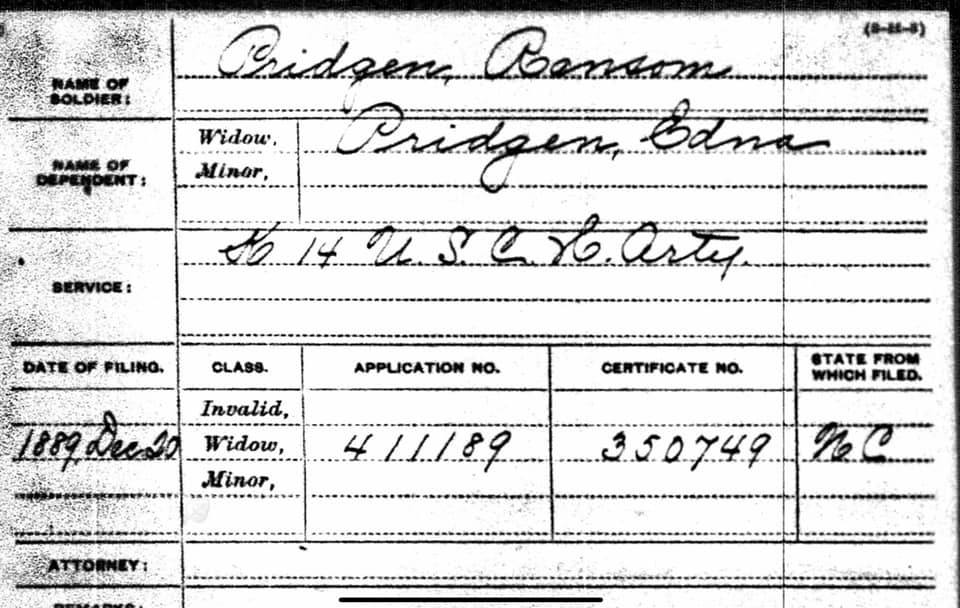 (3-11-3)
NAME OF SOLDIER: Pridgen, Ransom
NAME OF DEPENDENT: Widow, Pridgen, Edna
Minor,
SERVICE: K 14 U. S. C. H. Arty.
DATE OF FILING. CLASS. APPLICATION NO. CERTIFICATE NO. STATE FROM WHICH FILED.
Invalid,
1889, Dec 20 Widow, 411189 350749 N C
Minor,
ATTORNEY:
REMARKS: